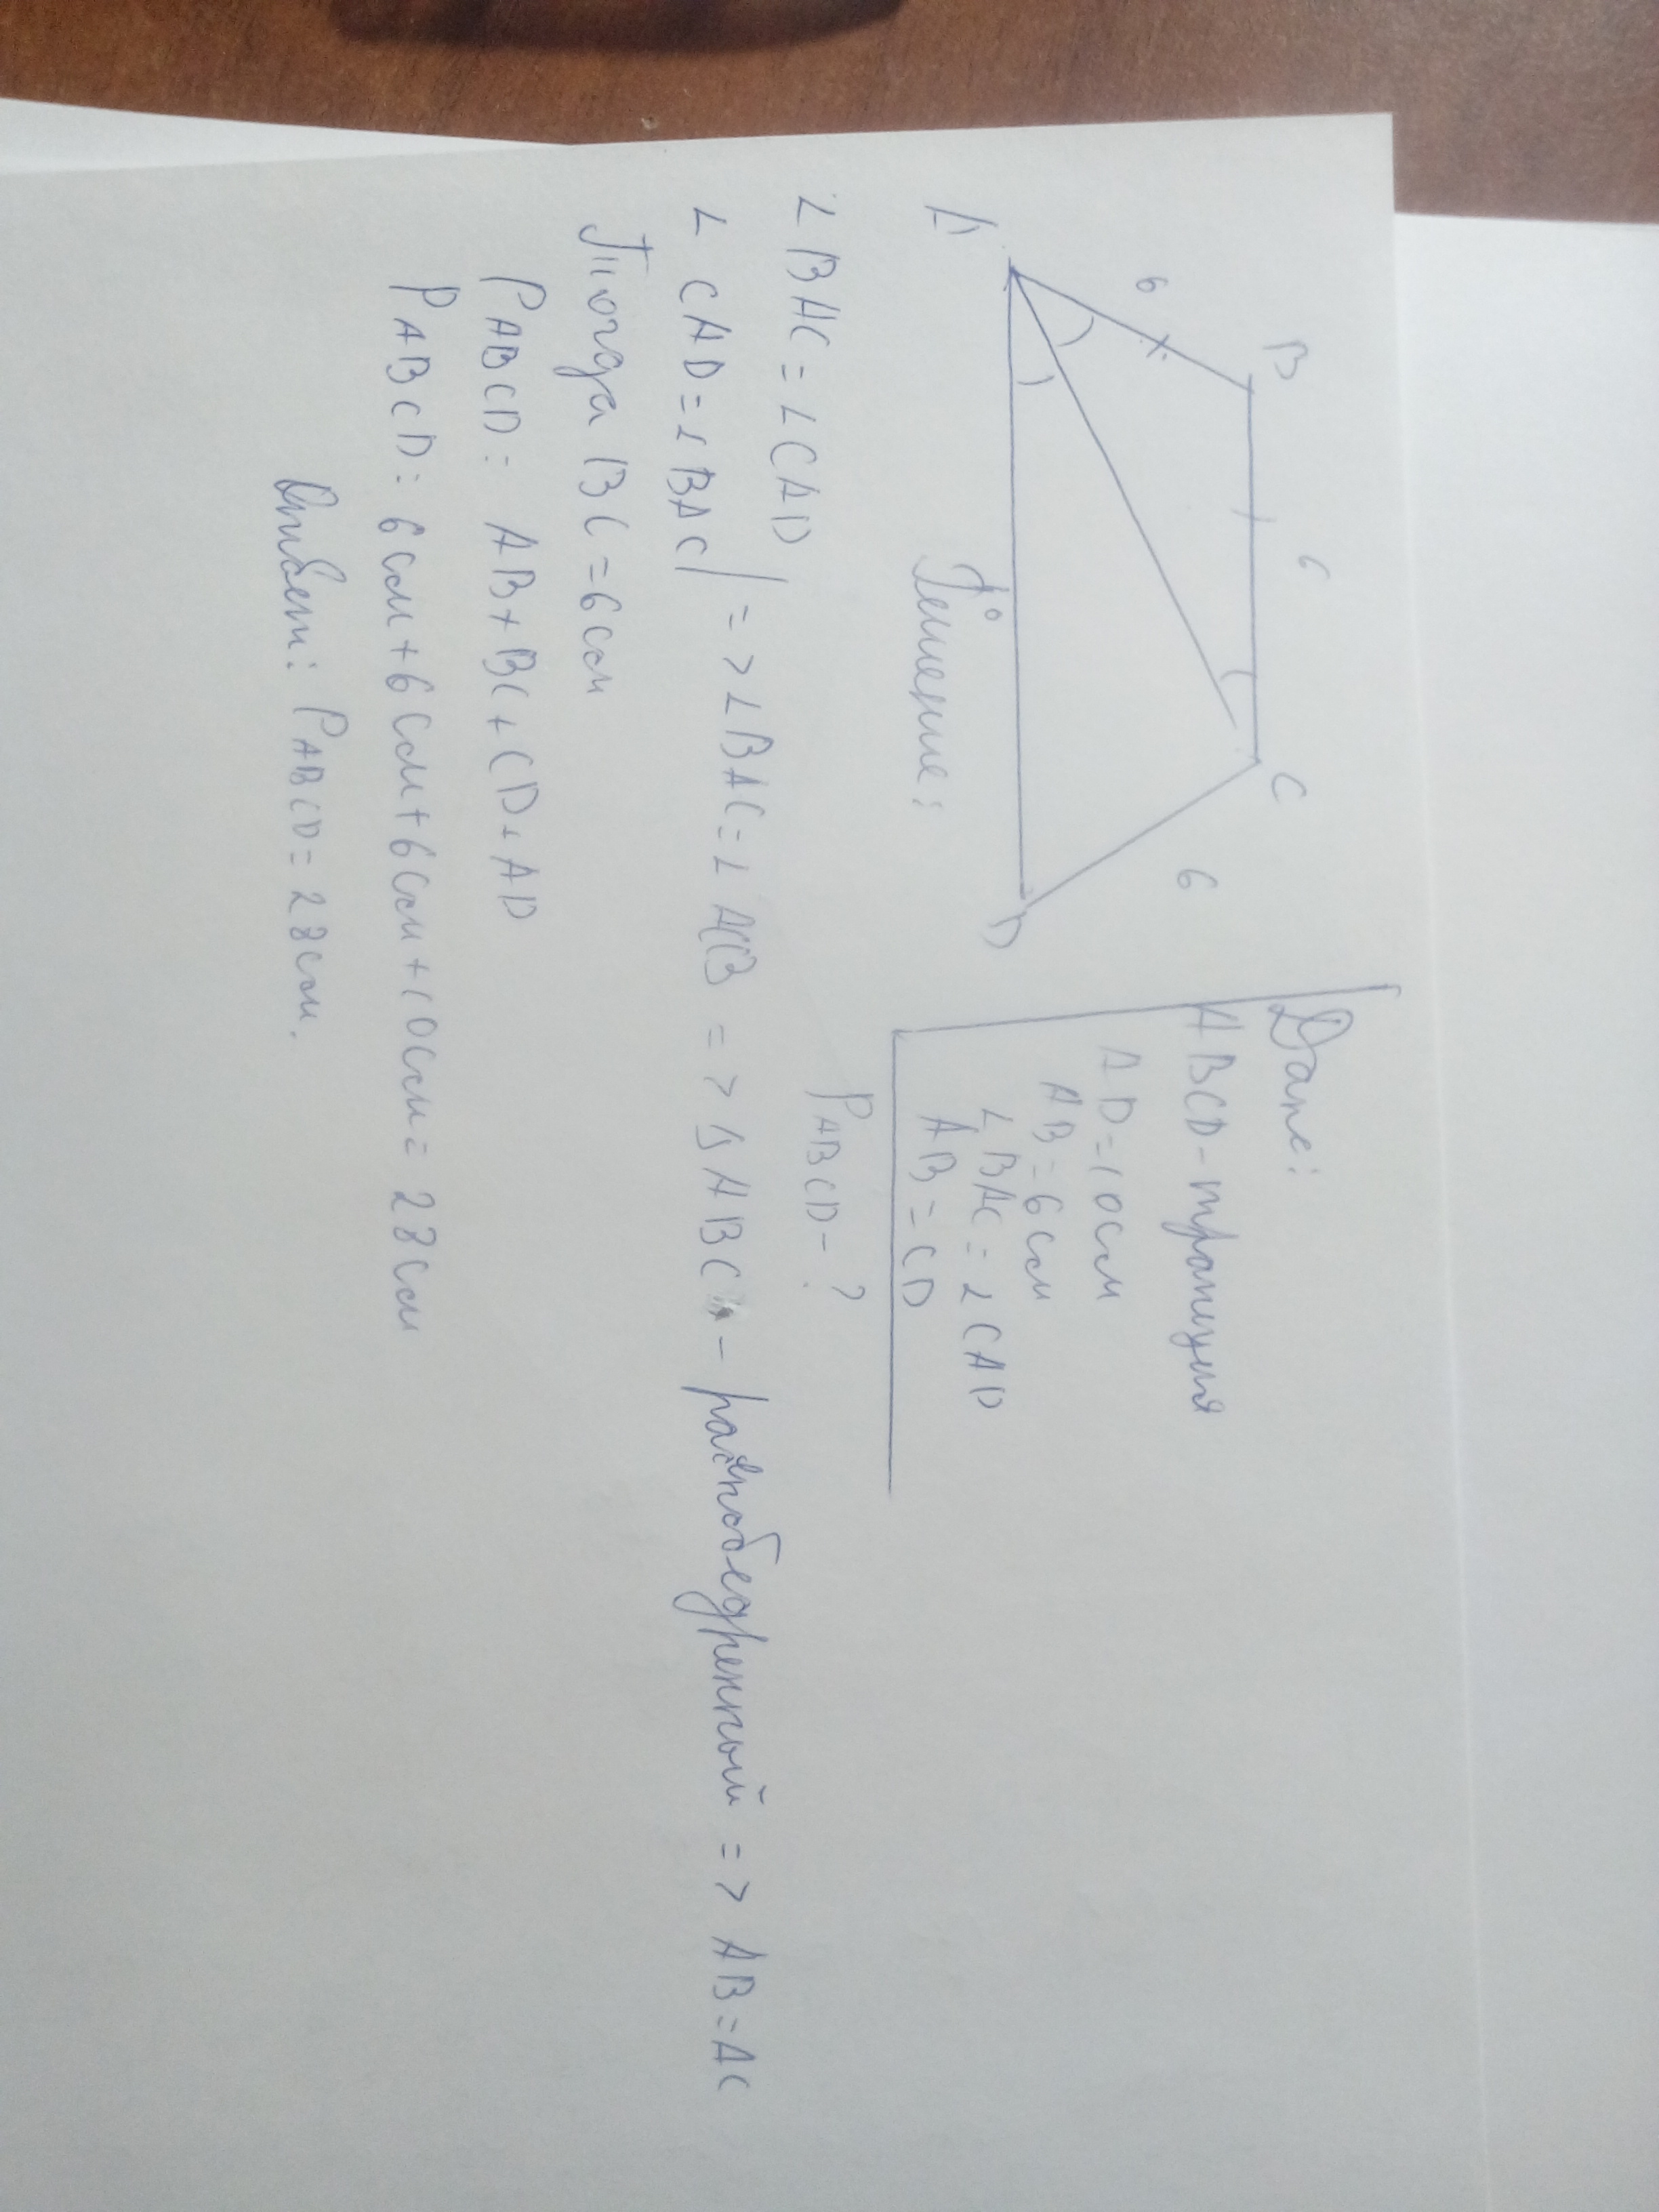 B
C
6
6
6
A
D
10
Дано:
ABCD - трапеция
AD = 10 см
AB = 6 см
∠ BAC = ∠ CAD
AB = CD
PABCD - ?
Решение:
∠ BAC = ∠ CAD
∠ CAD = ∠ BAC | => ∠ BAC = ∠ ACB => Δ ABC - равнобедренный => AB = AC
Тогда BC = 6 см
PABCD = AB + BC + CD + AD
PABCD = 6 см + 6 см + 6 см + 10 см = 28 см
Ответ: PABCD = 28 см.